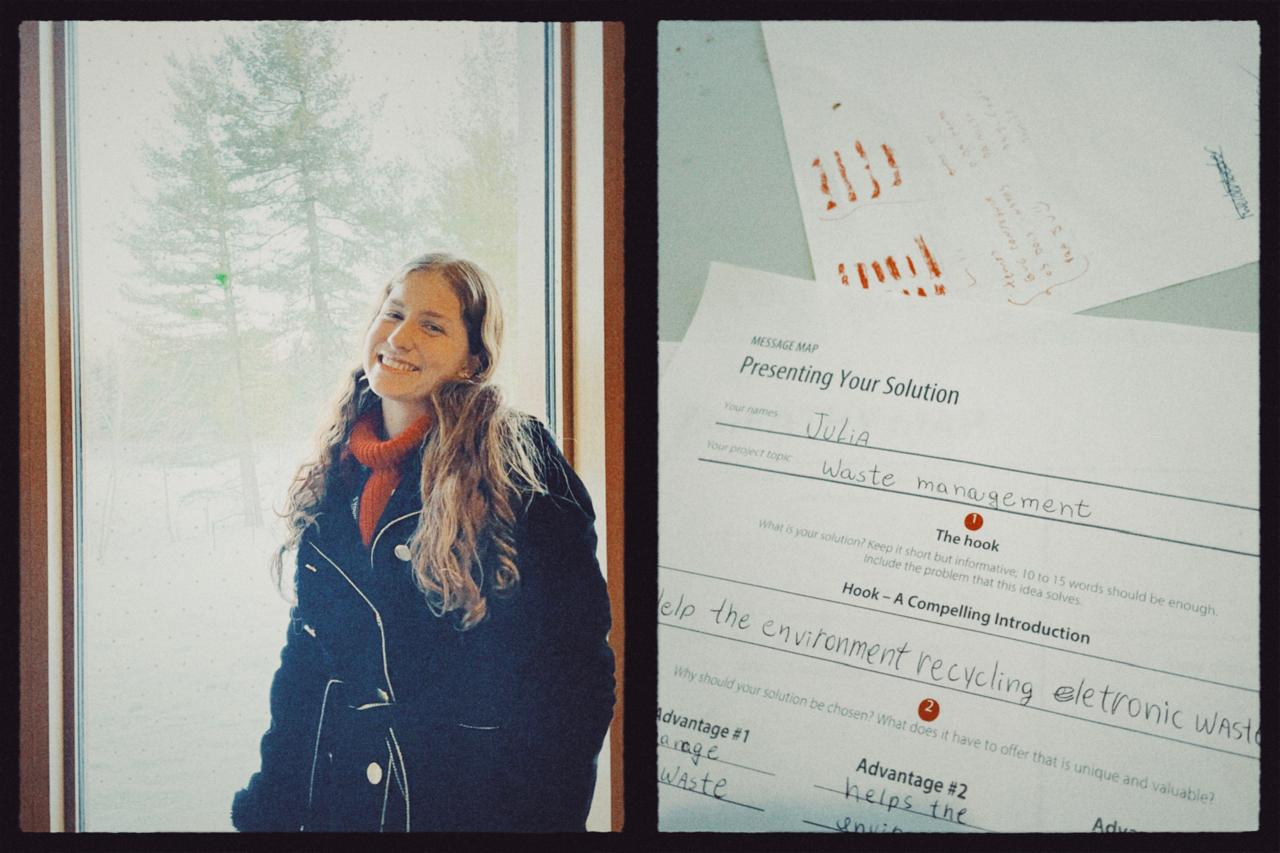 MESSAGE MAP
Presenting Your Solution
Your names Julia
Your project topic Waste management
1
The hook
What is your solution? Keep it short but informative; 10 to 15 words should be enough.
Include the problem that this idea solves.
Hook – A Compelling Introduction
elp the environment recycling eletronic waste
2
Why should your solution be chosen? What does it have to offer that is unique and valuable?
Advantage #1
waste
Advantage #2
helps the